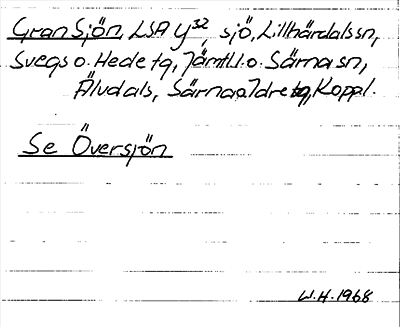 Gran Sjön, LSA y³², sjö, Lillhärdals sn,
Svegs o. Hede tg, Jämtl. l. o. Särna sn,
Älvdals, Särna o. Idre tg, Koppl.
Se Översjön
W.H. 1968